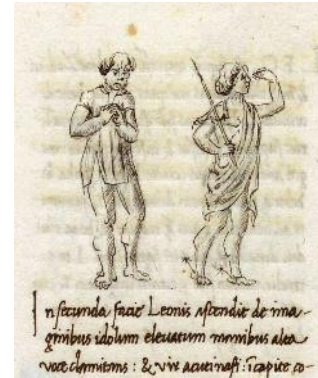 In secunda facie Leonis ascendit de ima-
ginibus idolum eleuatum manibus alta
voce clamitans: & vir acuti nasi: i capite co-